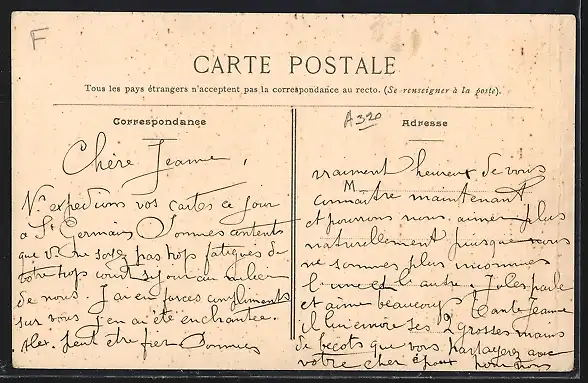 F
CARTE POSTALE
Tous les pays étrangers n'acceptent pas la correspondance au recto. (Se renseigner à la poste).
A320
Correspondance
Adresse
Chère Jeanne,
Ns expedions vos cartes ce jour
a St Germain Sommes contents
que vs ne soyez pas trop fatigués de
votre trop court séjour au milieu
de nous. J'ai eu forces compliments
sur vous j'en ai été enchantée.
Alex. peut être fier Sommes
vraiment heureux de vous
M
connaître maintenant
et pourrons nous aimer plus
naturellement puisque nous
ne sommes plus inconnues
l'une et l'autre. Jules parle
et aime beaucoup Tante Jeanne
il lui envoie ses 2 grosses mains
de becots que vous partagerez avec
votre cher époux pour nous